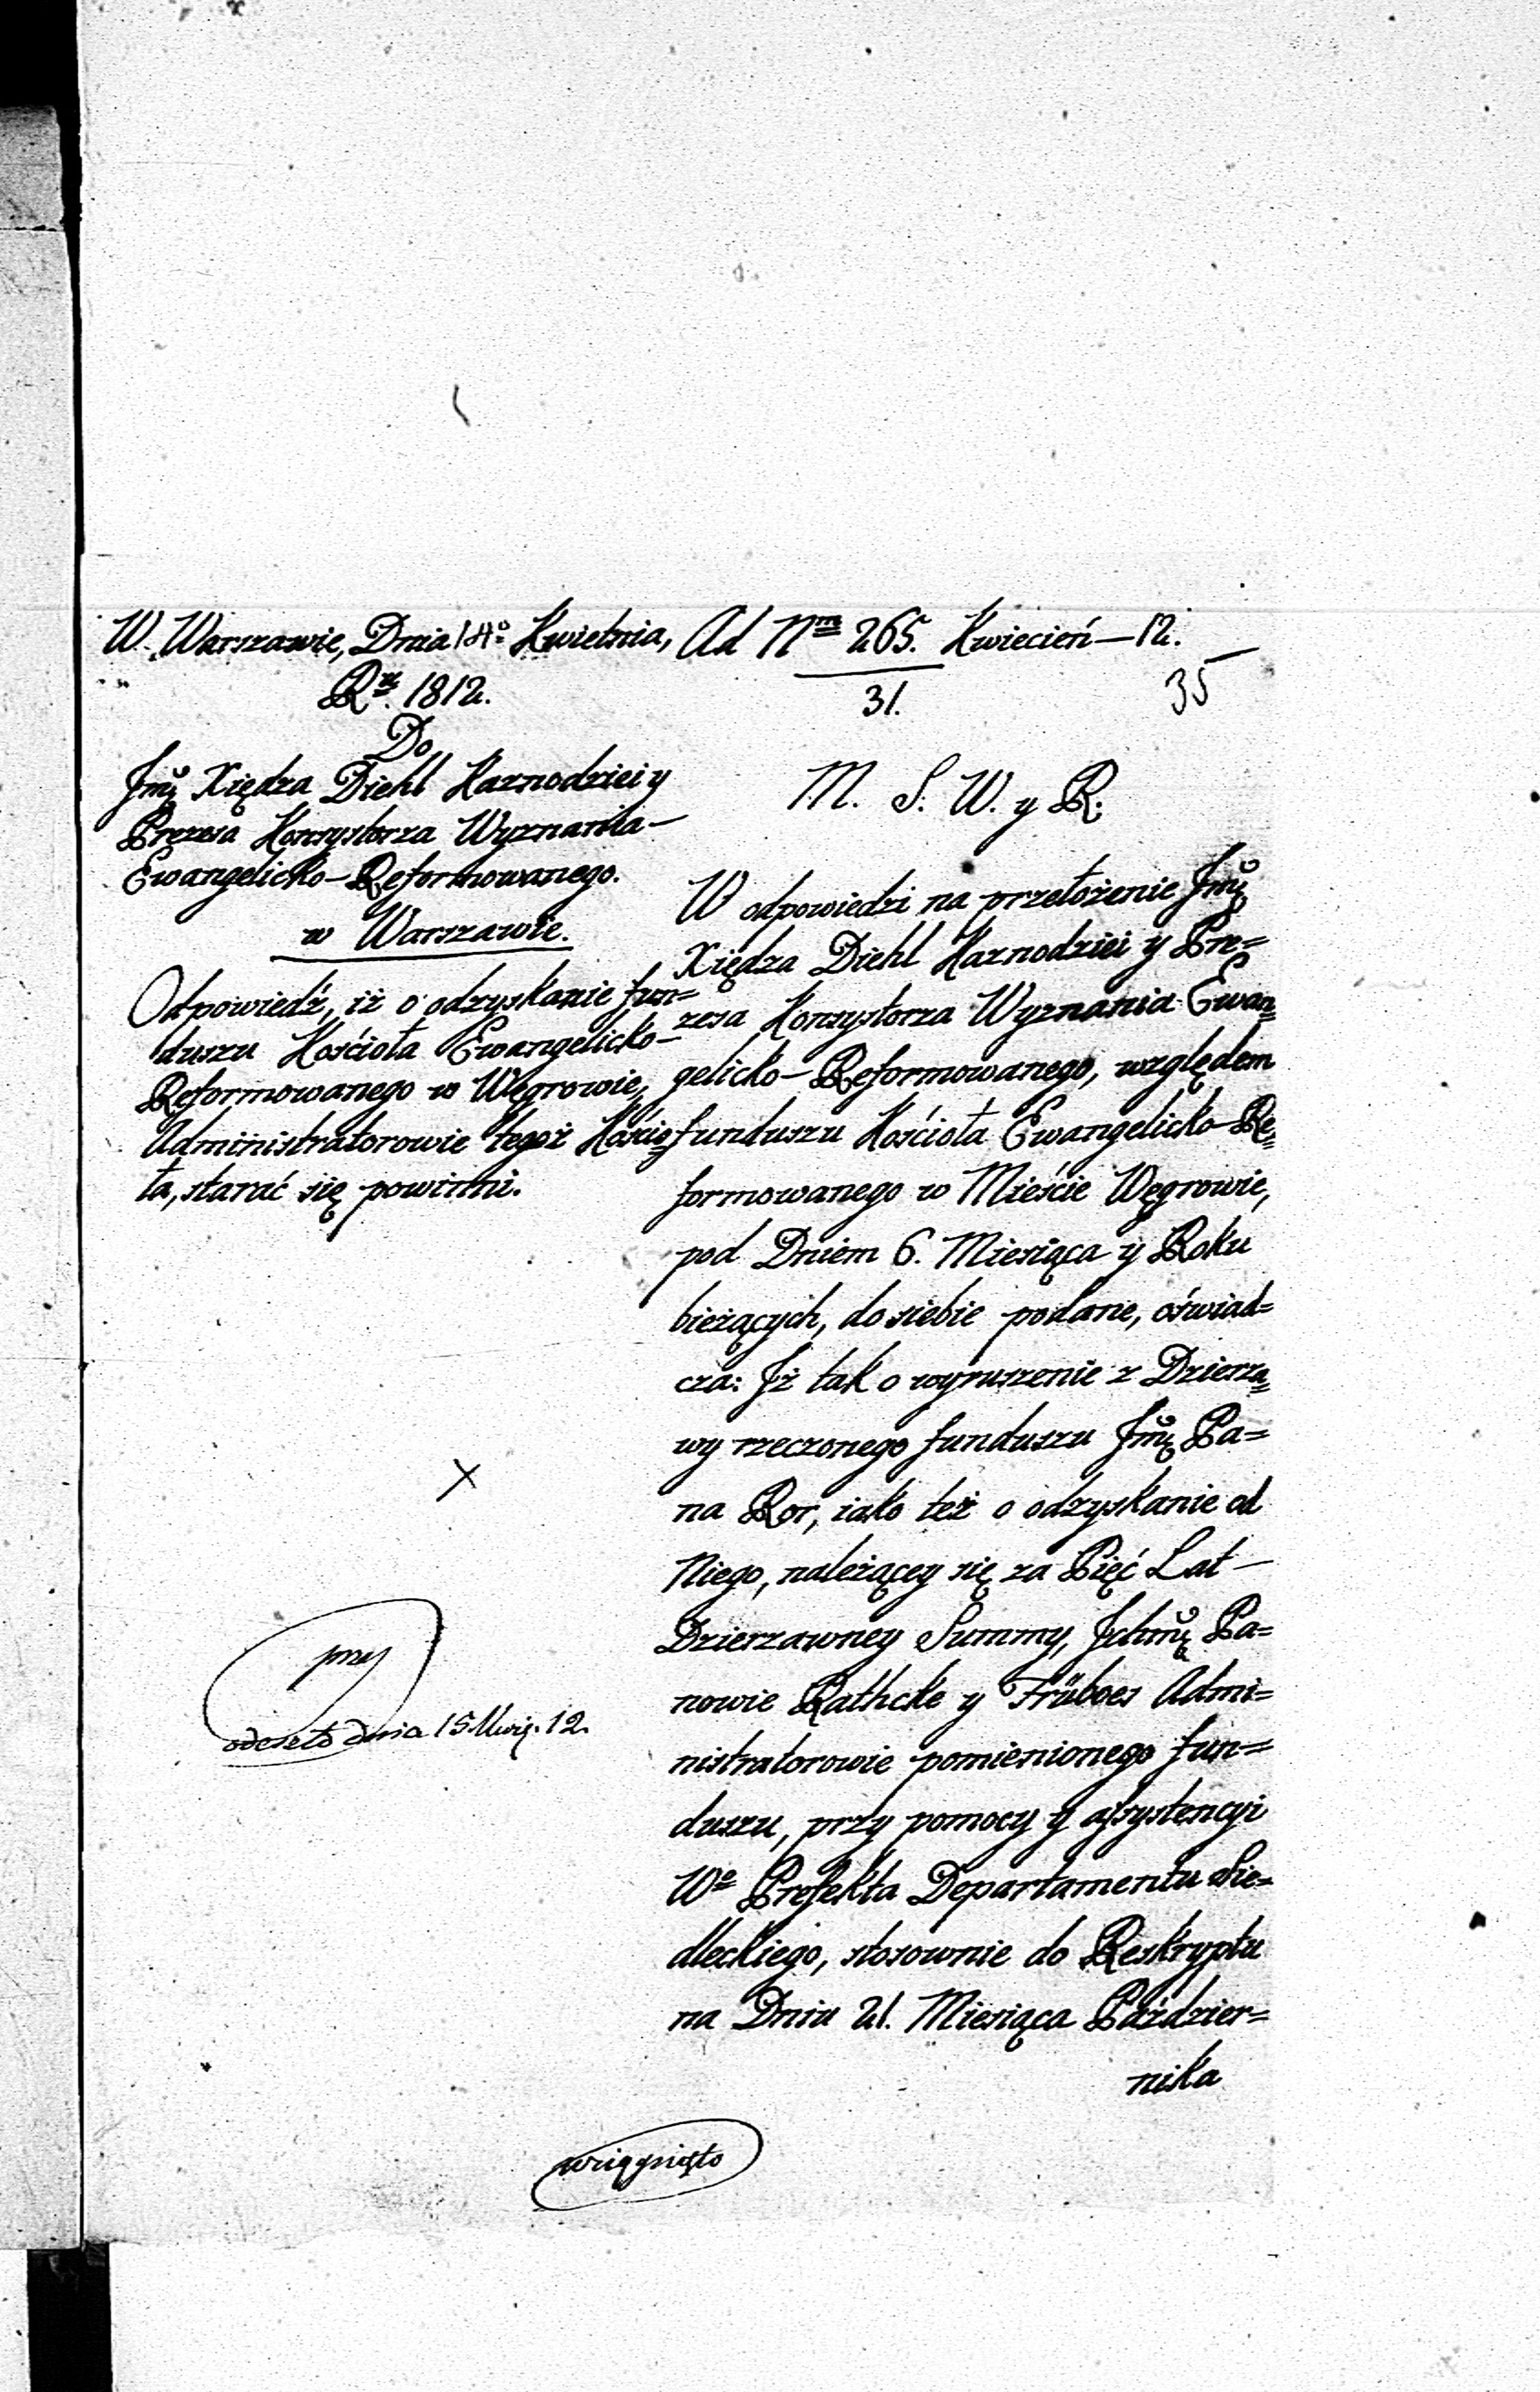 W. Warszawie, Dnia 14º Kwietnia,
Rꭒ. 1812.
Do
Jmꞇ Xiędza Diehl Kaznodziei y
Prezesa Konsystorza Wyznania—
Ewangelicko-Reformowanego.
w Warszawie.
Odpowiedź, iż o odzyskanie fun=
duszu Kościoła Ewangelicko-
Reformowanego w Węgrowie,
Administratorowie tegoż Kościo=
ła, starać się powinni.
odeszło dnia 15 Kwię. 12.
Ad Nm 265. Kwiecień—12.
31.
35
M. S. W. y R.
W odpowiedzi na przełożenie Jmꞇ
Xiędza Diehl Kaznodziei y Pre=
zesa Konsystorza Wyznania Ewan=
gelicko-Reformowanego, względem
funduszu Kościoła Ewangelicko-Re=
formowanego w Mieście Węgrowie,
pod Dniem 6. Miesiąca y Roku
bieżących, do siebie podane, oświad=
cza: Jż tak o wyruszenie z Dzierza=
wy rzeczonego funduszu Jmꞇ Pa=
na Ror, iako też o odzyskanie od
Niego, należącey się za Pięć Lat—
Dzierzawney Summy, Jchmꞇ Pa=
nowie Rathcke y Früboes Admi=
nistratorowie pomienionego fun=
duszu, przy pomocy y assystencyi
Wº Prefekta Departamentu Sie=
dleckiego, stosownie do Reskryptu
na Dniu 21. Miesiąca Paździer=
nika
wciągnięto